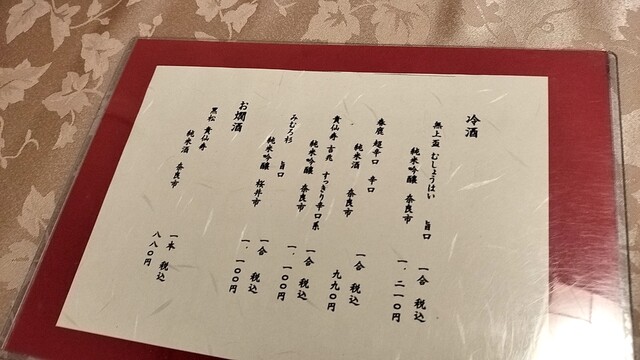 冷酒
無上盃 むしょうはい 旨口
純米吟醸 奈良市 一合 税込
一、二一〇円
春鹿 超辛口 辛口
純米酒 奈良市 一合 税込
九九〇円
貴仙寿 吉兆 すっきり辛口系
純米吟醸 奈良市 一合 税込
一、一〇〇円
みむろ杉 旨口
純米吟醸 桜井市 一合 税込
一、一〇〇円
お燗酒
黒松 貴仙寿
純米酒 奈良市 一本 税込
八八〇円